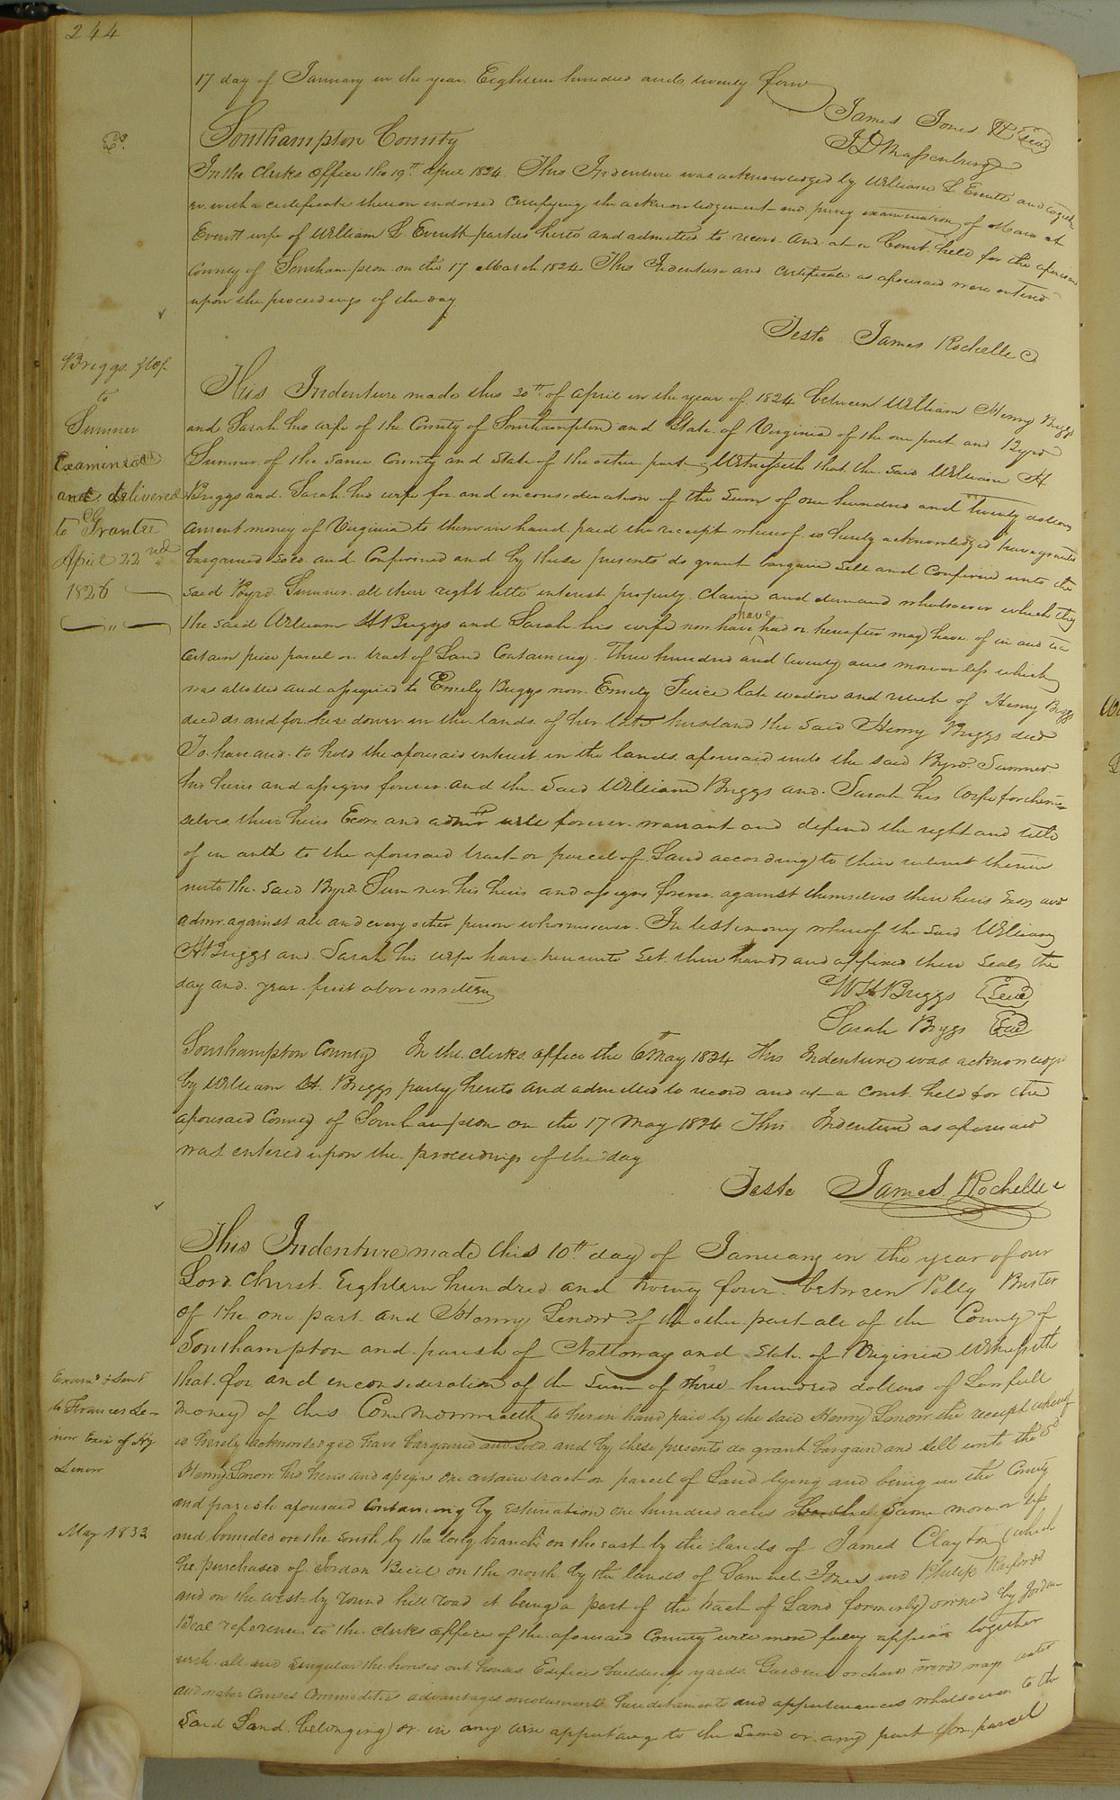 244
17 day of January in the year Eighteen hundred and twenty four
James Jones JP Seal
J D Massenburg
Southampton County
In the Clerks office the 19th April 1824 This Indenture was acknowledged by William L Everett and together
with a certificate thereon endorsed certifying the acknowledgement and privy examination of
Everett wife of William L Everett parties hereto and admitted to record And at a Court held for the aforesaid
County of Southampton on the 17 March 1824 This Indenture and Certificate as aforesaid were entered
upon the proceedings of the day
Teste James Rochelle C
Briggs
to
Sumner
Examined
and delivered
to Grantee
April 22nd
1826
This Indenture made this 20th of April in the year of 1824 between William Henry Briggs
and Sarah his wife of the County of Southampton and State of Virginia of the one part and Byrd
Sumner of the same County and State of the other part Witnesseth that the said William H
Briggs and Sarah his wife for and in consideration of the sum of one hundred and twenty dollars
current money of Virginia to them in hand paid the receipt whereof is hereby acknowledged have granted
bargained sold and Confirmed and by these presents do grant bargain sell and Confirm unto the
said Byrd Sumner all their right title interest property claim and demand whatsoever which they
the said William H Briggs and Sarah his wife now have have had or hereafter may have of in and to a
certain piece parcel or tract of Land Containing Three hundred and twenty acres more or less which
was allotted and assigned to Emely Briggs now Emely late widow and relict of Henry Briggs
decd as and for her dower in the lands of her late husband the said Henry Briggs decd
To have and to hold the aforesaid interest in the lands aforesaid unto the said Byrd Sumner
his heirs and assigns forever and the said William Briggs and Sarah his wife for them-
selves their heirs Exors and admrs will forever warrant and defend the right and title
of in and to the aforesaid tract or parcel of Land according to their interest therein
unto the said Byrd Sumner his heirs and assigns forever against themselves their heirs Exors and
admrs against all and every other person whomsoever In testimony whereof the said William
H Briggs and Sarah his wife have hereunto set their hands and affixed their Seals the
day and year first above written
W H Briggs Seal
Sarah Briggs Seal
Southampton County In the clerks office the 6th May 1824 This Indenture was acknowledged
by William H. Briggs party hereto and admitted to record and at a court held for the
aforesaid County of Southampton on the 17 May 1824 This Indenture as aforesaid
was entered upon the proceedings of the day
Teste James Rochelle
This Indenture made this 10th day of January in the year of our
Lord Christ Eighteen hundred and twenty four between Polly
of the one part and Henry Lenow of the other part all of the County of
Southampton and parish of Nottoway and State of Virginia Witnesseth
Examd & Sent
to Frances Le-
now Exix of Hy
Lenow
May 1833
that for and in consideration of the sum of three hundred dollars of Lawfull
money of this Commonwealth to her in hand paid by the said Henry Lenow the receipt whereof
is hereby acknowledged have bargained and sold and by these presents do grant bargain and sell unto the sd
Henry Lenow his heirs and assigns one certain tract or parcel of Land lying and being in the County
and parish aforesaid containing by estimation one hundred acres be the same more or less
and bounded on the south by the long branch on the east by the lands of James Clayton which
he purchased of Jordan on the north by the lands of Samuel Jones and Philip
and on the west by round hill road it being a part of the tract of Land formerly owned by Jordan
reference to the clerks office of the aforesaid County will more fully appear together
with all and singular the houses out houses Edifices buildings yards Gardens orchards wood ways waters
and water courses Commodities advantages hereditaments and appurtenances whatsoever to the
said Land belonging or in any wise appertaining to the same or any part or parcel